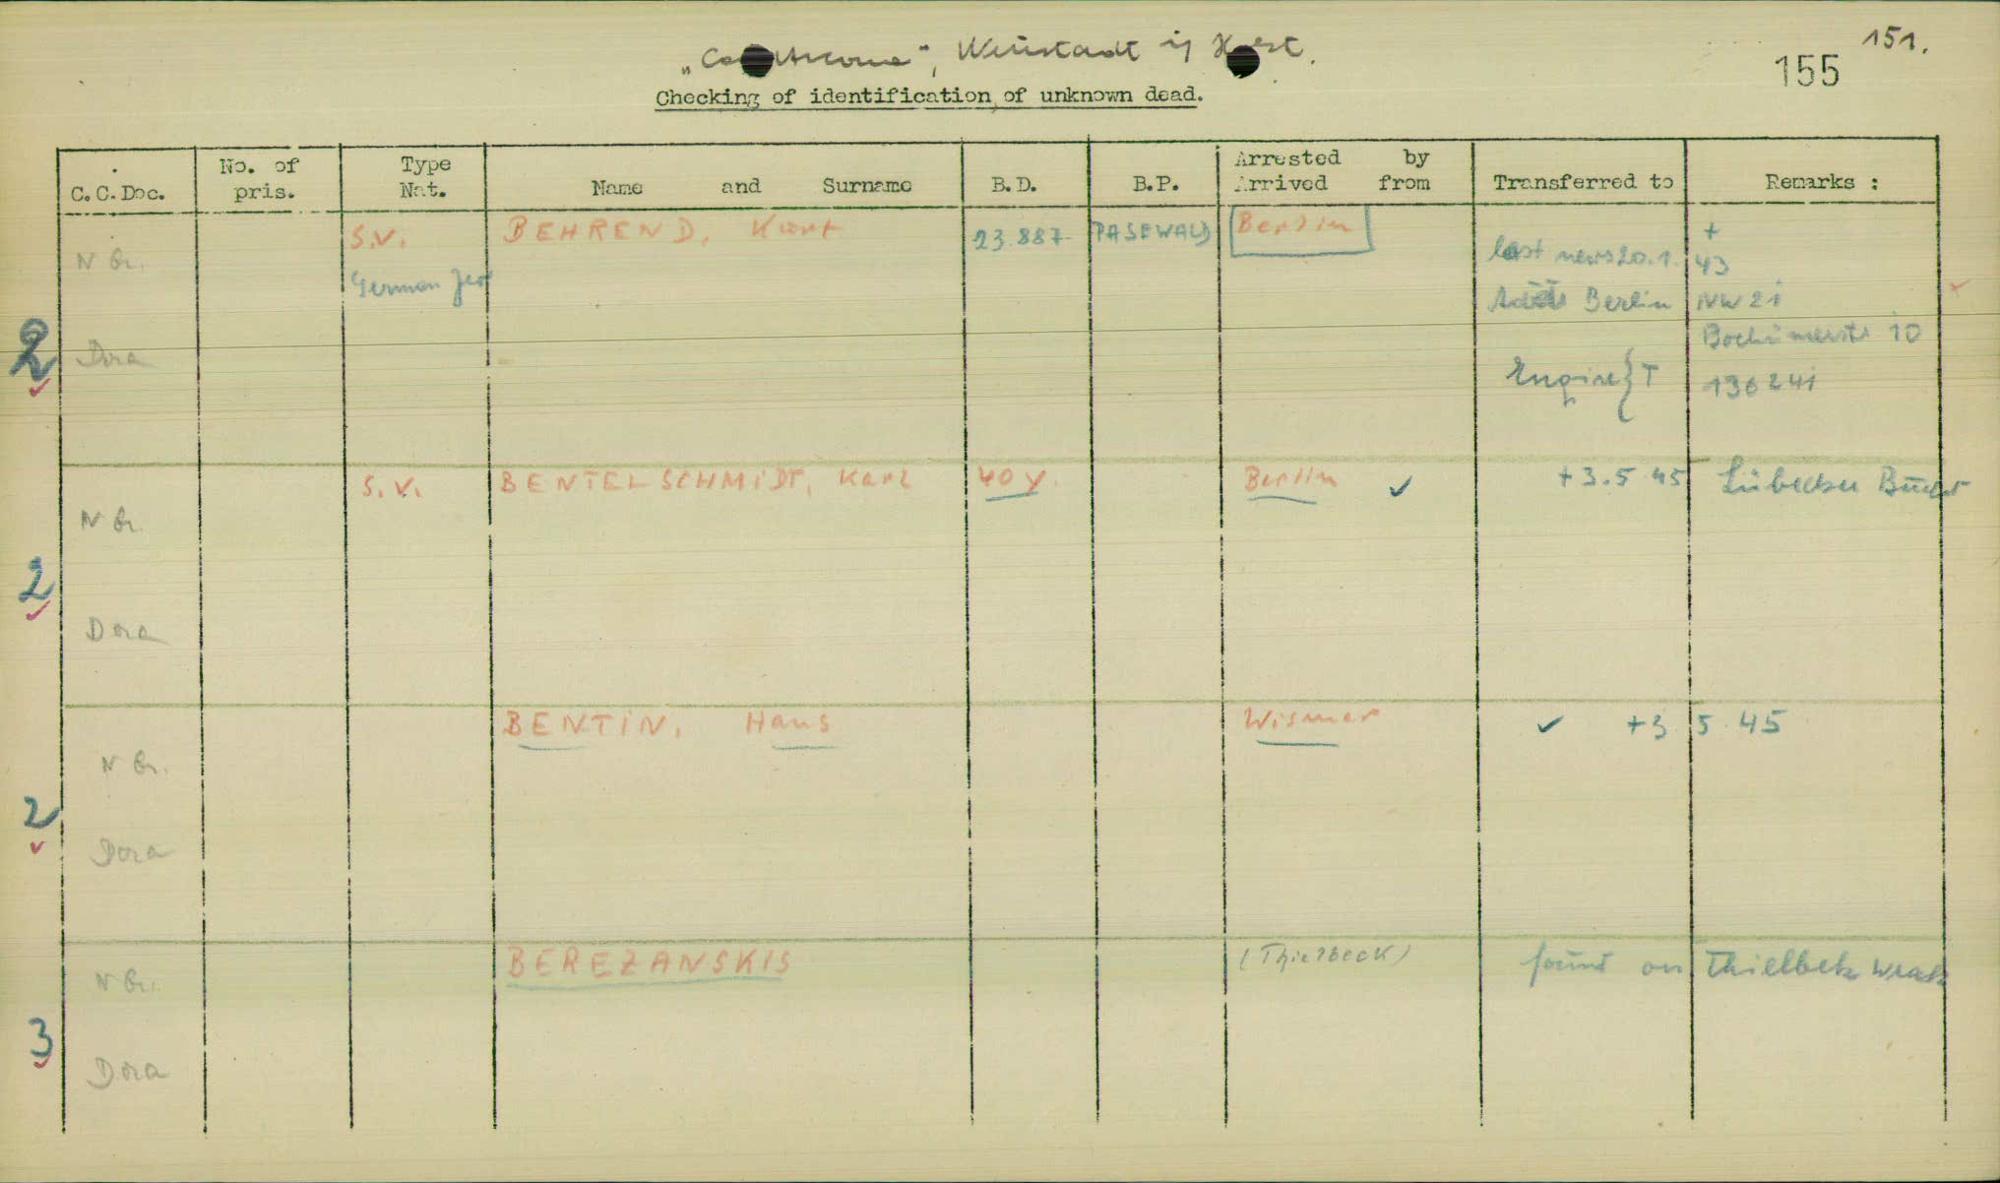 151.
"Cap Arcona", Neustadt i/ Holst.
155
Checking of identification of unknown dead.
C.C.Doc. No. of pris. Type Nat. Name and Surname B.D. B.P. Arrested by Arrived from Transferred to Remarks :
N Gr. S.V. BEHREND, Kurt 23.887 PASEWALD Berlin +
German Jew last news 20.1.43
Berlin NW 21
2 Dora 10
T 136241
N Gr. S.V. BENTELSCHMIDT, Karl 40 y. Berlin ✓ +3.5 45 Lübecker Bucht
2
Dora
BENTIN, Hans Wismar ✓ +3 5. 45
N Gr.
2
Dora
BEREZANSKIS (Thielbeck) found on Thielbek wrak
N Gr.
3
Dora